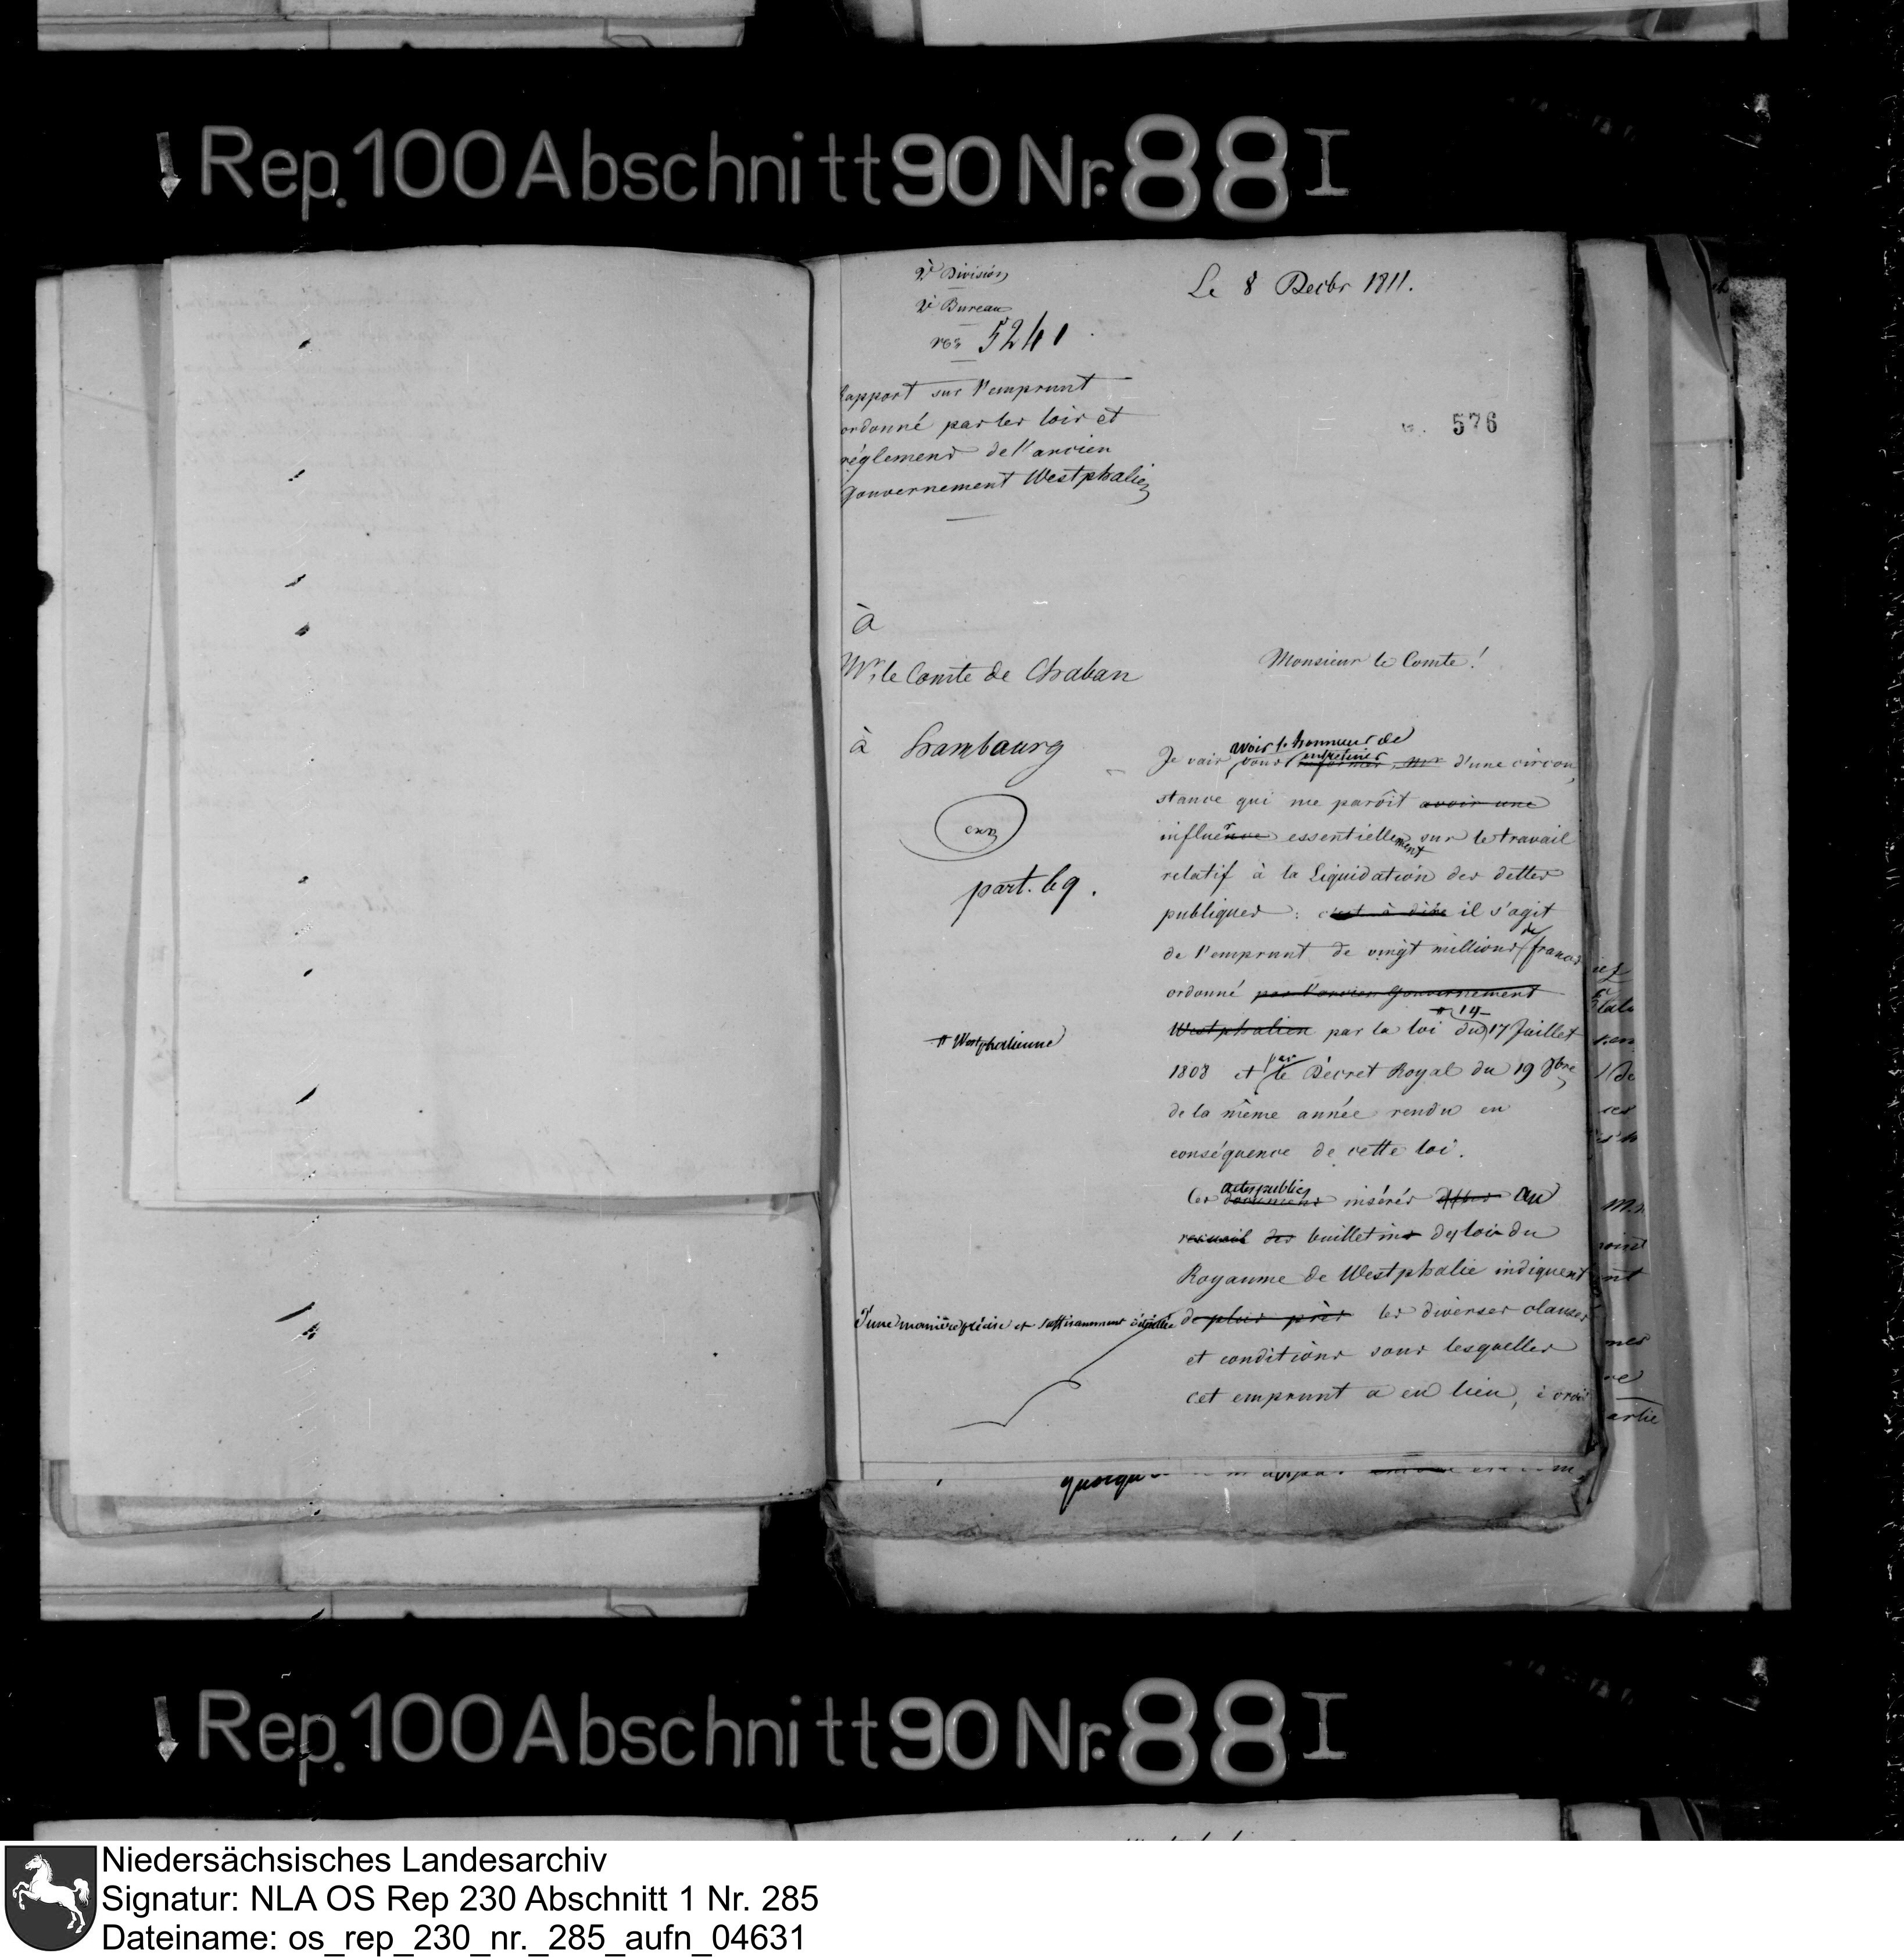 Rep. 100 Abschnitt 90 Nr. 88 I
2e Division
2e Bureau
No 5241
Le 8 Decbr 1811.
576
Rapport sur l'emprunt
ordonné par les lois et
réglemens de l'ancien
gouvernement Westphalien
à
Mr. le Comte de Chaban
à Hambourg
part. le 9.
Monsieur le Comte!
voir l'honneur de
entretenir
Je vais vous informer, Mr d'une circon
stance qui me paroît avoir une
influence essentiellement sur le travail
relatif à la Liquidation des dettes
publiques: c'est à dire il s'agit
de l'emprunt de vingt millions de francs
ordonné par l'ancien Gouvernement
Westphalien par la loi du 17 Juillet
# 14
# Westphalienne
1808 et par le Décret Royal du 19 8bre
de la même année rendu en
conséquence de cette loi.
actes publics
Les documens insérés au
recueil des bulletins des lois du
Royaume de Westphalie indiquent
d'une manière précise et suffisamment détaillée
de plus près les diverses clauses
et conditions sous lesquelles
cet emprunt a eu lieu,
Rep. 100 Abschnitt 90 Nr. 88 I
Niedersächsisches Landesarchiv
Signatur: NLA OS Rep 230 Abschnitt 1 Nr. 285
Dateiname: os_rep_230_nr._285_aufn_04631